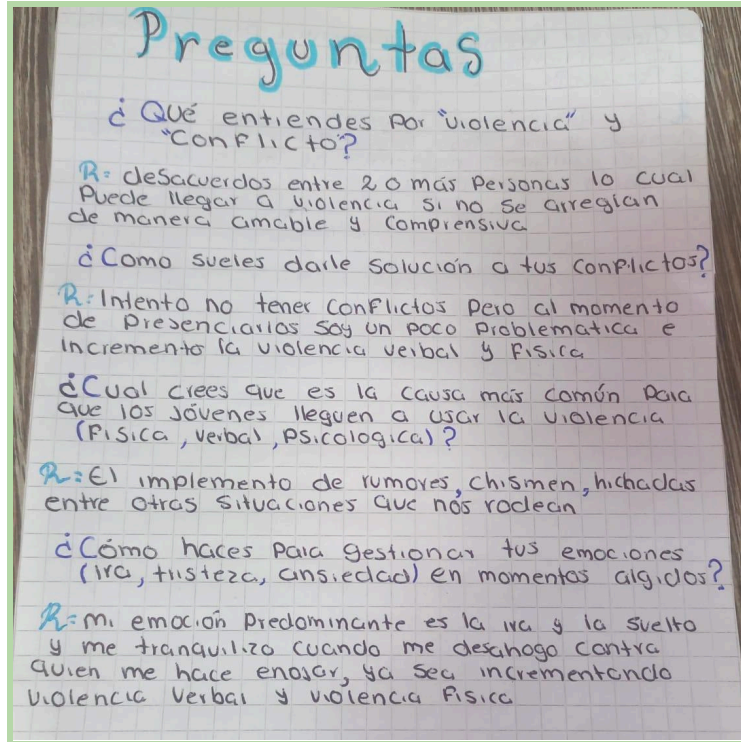 Preguntas
¿Qué entiendes por "violencia" y
"conflicto"?
R= desacuerdos entre 2 o más personas lo cual
Puede llegar a violencia si no se arreglan
de manera amable y comprensiva
¿Como sueles darle solución a tus conflictos?
R= Intento no tener conflictos pero al momento
de presenciarlos soy un poco problematica e
incremento la violencia verbal y fisica
¿Cual crees que es la causa más común para
que los jóvenes lleguen a usar la violencia
(fisica, verbal, psicologica)?
R= El implemento de rumores, chismen, hichadas
entre otras situaciones que nos rodean
¿Cómo haces para gestionar tus emociones
(ira, tristeza, ansiedad) en momentos algidos?
R= mi emoción predominante es la ira y la suelto
y me tranquilizo cuando me desahogo contra
quien me hace enojar, ya sea incrementando
violencia verbal y violencia fisica